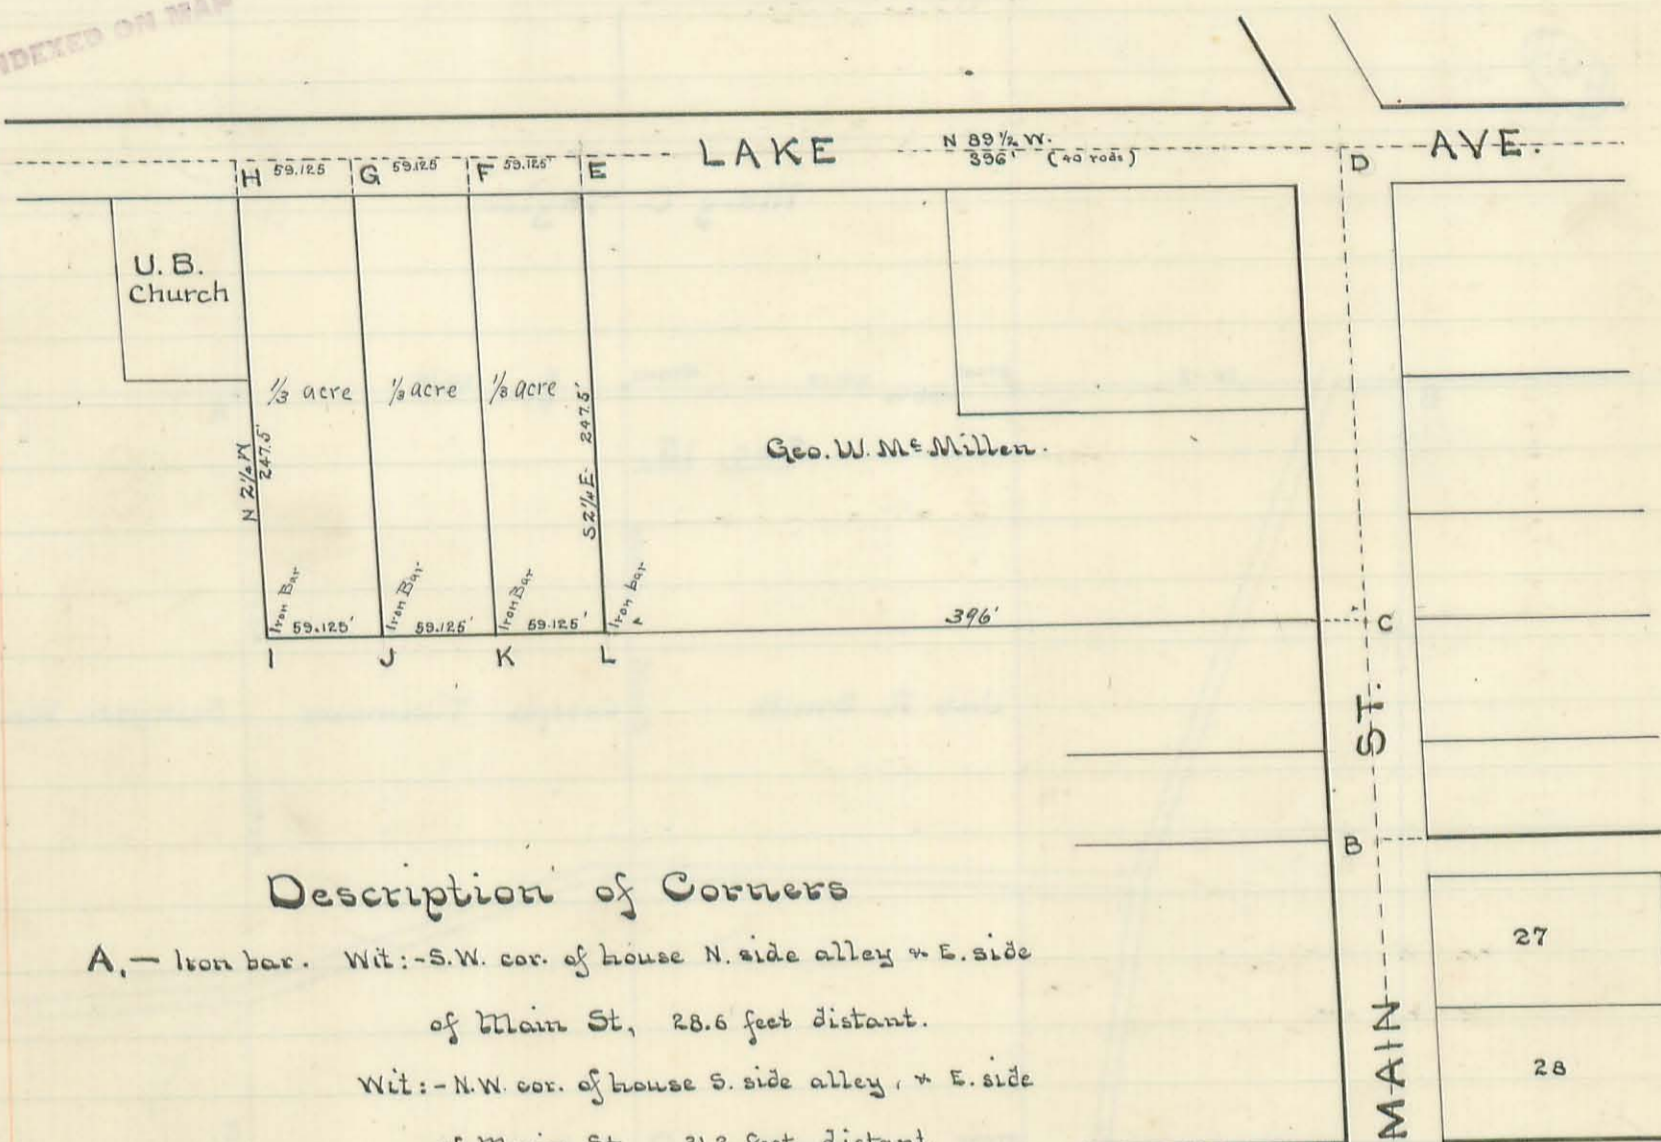 INDEXED ON MAP
LAKE AVE.
N 89 1/2 W.
396' (40 rods)
H 59.125 G 59.125 F 59.125' E
D
U. B.
Church
1/3 acre 1/3 acre 1/3 acre
N 2 1/4 W
247.5'
S 2 1/4 E 247.5'
Geo. W. McMillen.
Iron Bar Iron Bar Iron Bar Iron bar
59.125' 59.125' 59.125' 396'
I J K L
C
B
MAIN ST.
27
28
Description of Corners
A,— Iron bar. Wit:-S.W. cor. of house N. side alley & E. side
of Main St, 28.6 feet distant.
Wit:-N.W. cor. of house S. side alley, & E. side
of Main St. 31.2 feet distant